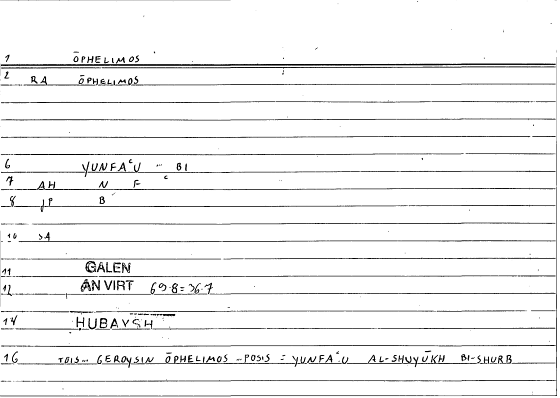 1 ŌPHELIMOS
2 RA ŌPHELIMOS
6 YUNFAᶜU - BI
7 AH N F ᶜ
8 JP B
10 SA
11 GALEN
12 AN VIRT 69.8=36.7
14 HUBAYSH
16 TOIS- GEROUSIN ŌPHELIMOS -POSIS = YUNFAᶜU AL-SHUYŪKH BI-SHURB